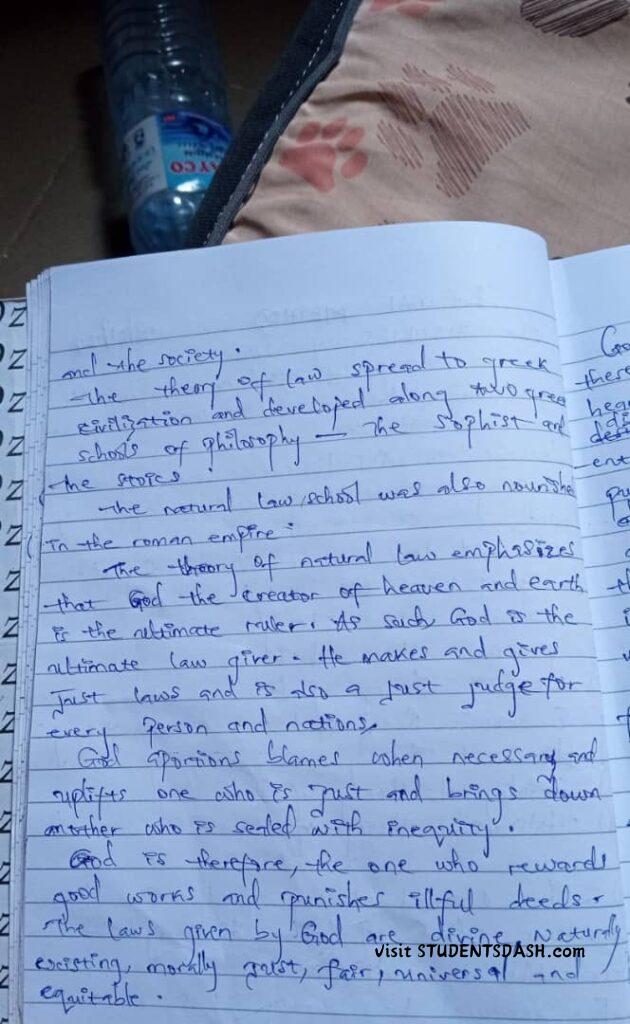 and the society.
the theory of law spread to greek
civilization and developed along two gree
schools of philosophy — the sophist and
the stoics.
the natural law school was also nourishe
in the roman empire.
The theory of natural law emphasizes
that God the creator of heaven and earth
is the ultimate ruler. As such God is the
ultimate law giver. He makes and gives
Just laws and is also a just judge for
every person and nations.
God aportions blames when necessary and
uplifts one who is just and brings down
another who is sealed with inequity.
God is therefore, the one who rewards
good works and punishes illful deeds.
The laws given by God are divine Naturally
existing, morally just, fair, universal and
equitable.
Go
there
hea
ent
pu
AYCO
Visit STUDENTSDASH.com